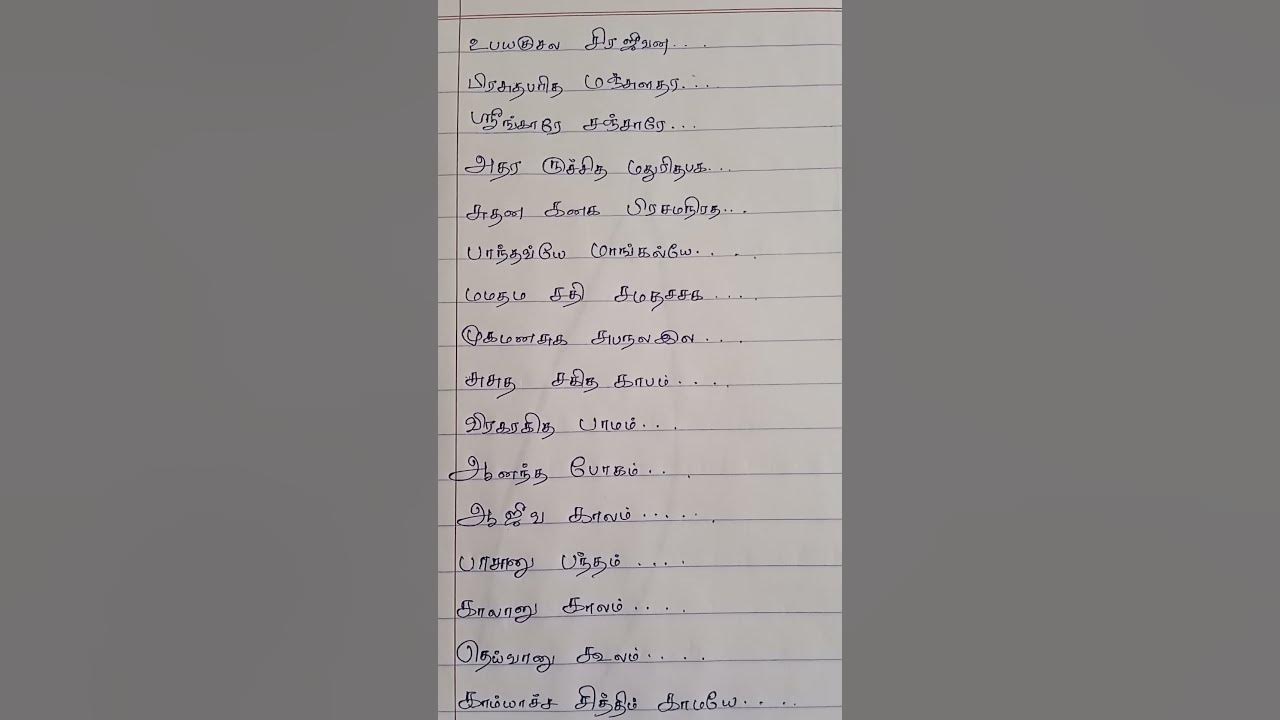 உபயகுசல சிரஜீவன....
பிரசுதபரித மஞ்சுளதர.....
ஸ்ரீங்காரே சஞ்சாரே...
அதர ருச்சித மதுரிதபக...
சுதன கனக பிரசமநிரத...
பாந்தவ்யே மாங்கல்யே.....
மமதம சதி சமதசசக.....
முகமனசுக சுபநலஇல....
அசுத சகித காபம்....
விரகரகித பாமம்...
ஆனந்த போகம்...
ஆஜீவ காலம்......
பாசானு பந்தம் ....
காலானு காலம்....
தெய்வானு கூலம்.....
காம்யாச்ச சித்திம் காமயே.....